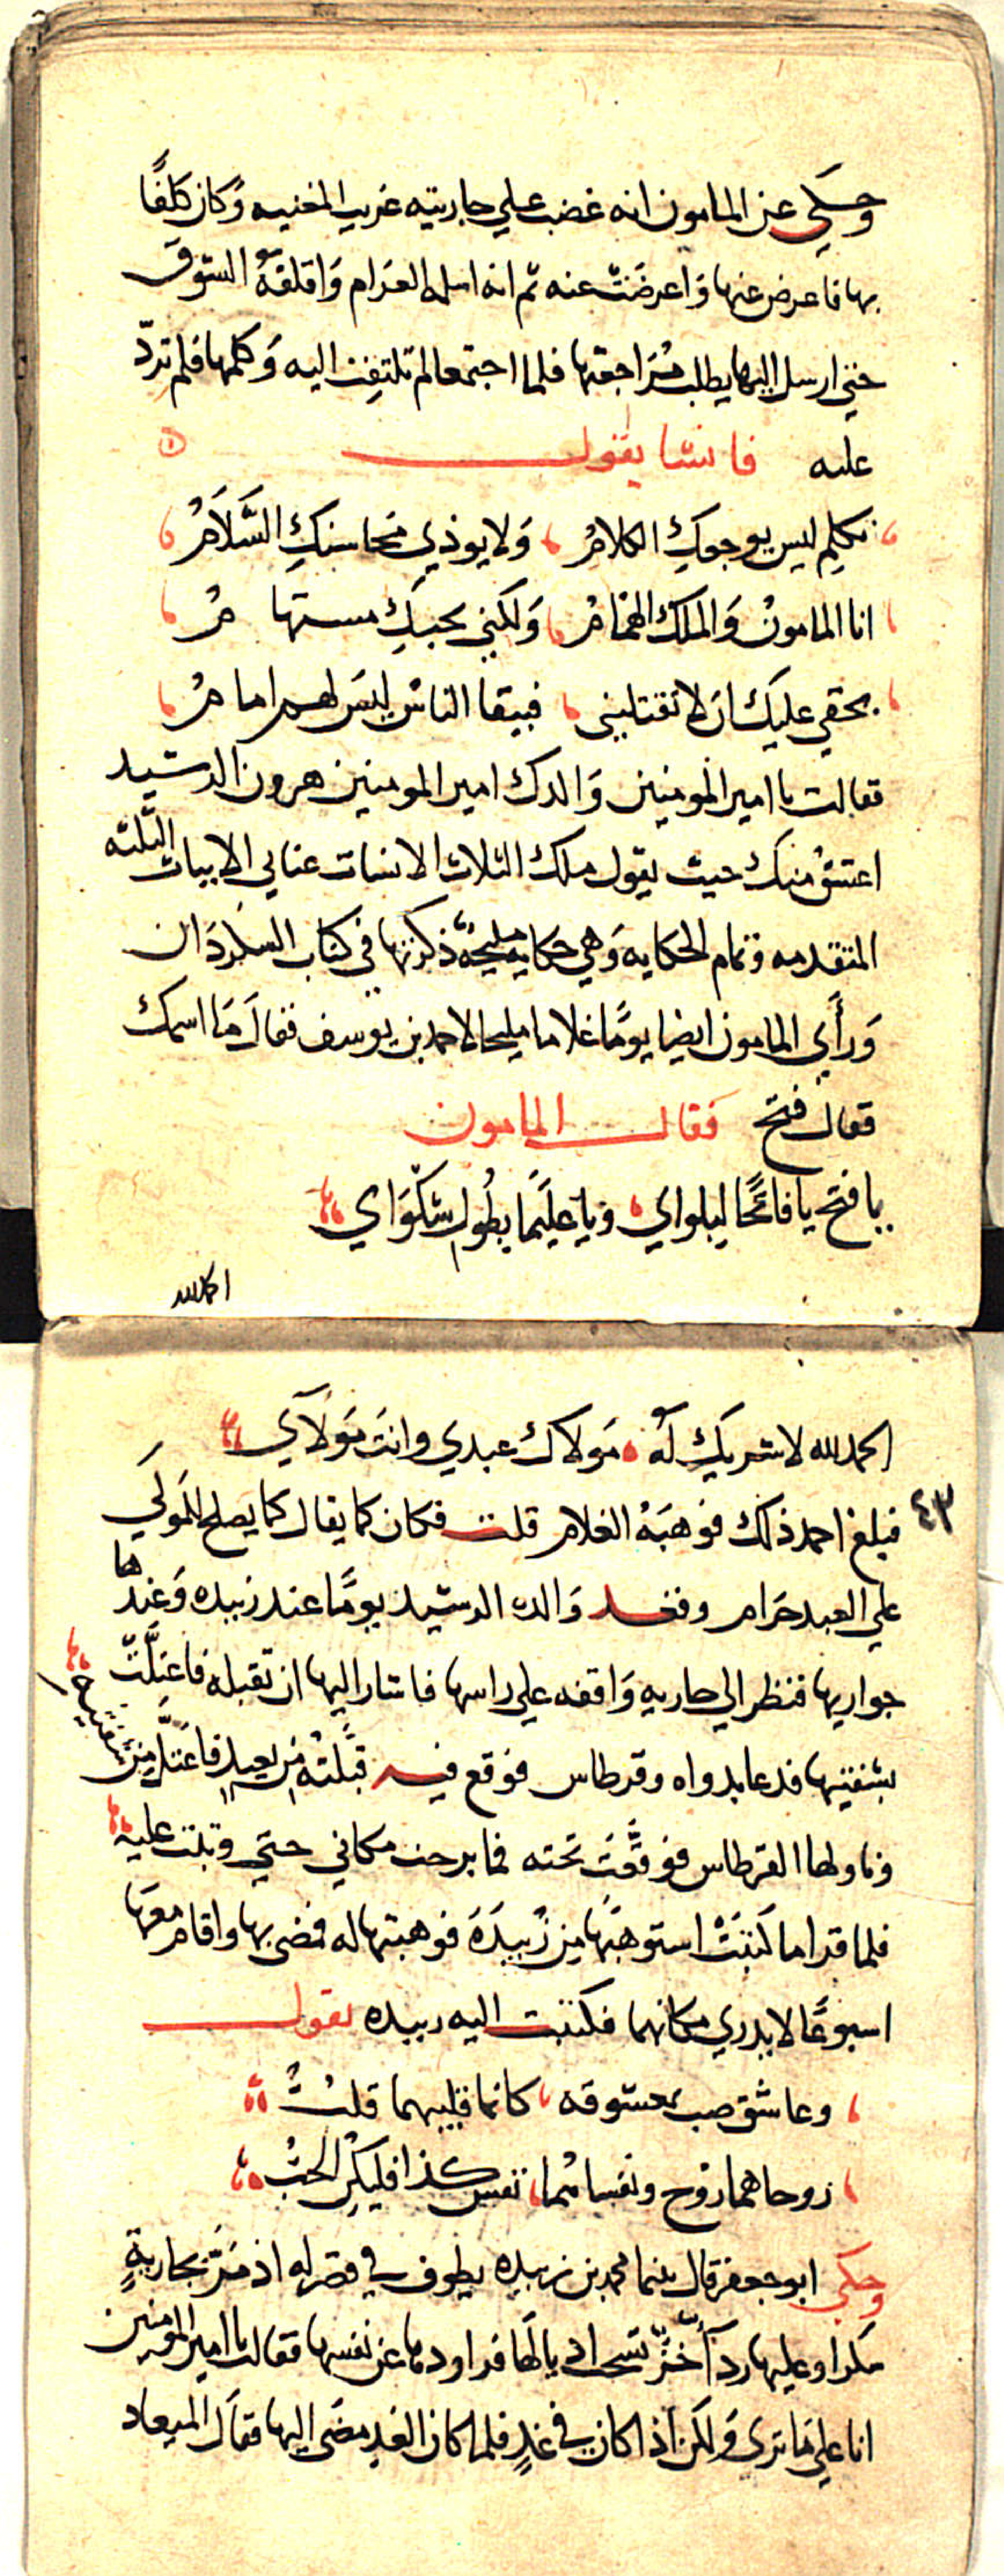 وحكي عن المامون انه غضب علي جاريته عريب المغنيه وَكان كلفًا
بها فاعرض عنها وَاعرضَتْ عنه ثم انه اسلمه الغرام وَاقلقهُ الشوق
حتي ارسل اليها يطلب مُرَاجعتها فلما اجتمعا لم تلتفِت اليه وَكلمها فلم تردّ
عليه فانشا يقول
تكلم ليس يوجعكِ الكلامُ وَلا يوذي محاسنكِ السَّلَامُ
انا المامونُ وَالملك الهمَامُ وَلكني بحبكِ مستهامُ
بحقي عليك ان لا تقتليني فيبقا الناسُ ليسَ لهم امامُ
فقالت يا امير المومنين وَالدك امير المومنين هرون الرشيد
اعشقُ منك حيث يقول ملك الثلاث الانسات عناني الابيات الثلثه
المتقدمه وتمام الحكايه وَهي حكاية مليحةٌ ذكرتها في كتاب السكردَان
وَرأَي المامون ايضا يومًا غلاما مليحا لاحمد بن يوسف فقالَ مَا اسمك
فقال فتح فقال المامون
يا فتح يا فاتحًا لبلواي ويا عليمًا بطُول شكْوَاي
الحمد لله
الحمد لله لا شريك لَه مَولاك عبدي وانتَ مَولَاي
٤٣
فبلغ احمد ذلك فوهبَهُ الغلام قلت فكان كما يقال كما يصلح للمَولَي
علي العبد حَرام وقعد وَالده الرشيد يومًا عند زبيده وَعندها
جواريها فنظر الي جاريه وَاقفه علي راسها فاشار اليها ان تقبله فاعتلَّتْ
بشفتيها فدعا بدواه وقرطاس فوقع فيه قبَّلتُه من بعيد فاعتلَّ مِن شفتيه
وناولها القرطاس فوقَّعَتْ تحته فما برحت مكاني حتَي وثبت عليه
فلما قرا ما كَتبَتْ استوهَبَها مِن زُبيدَةَ فوهبتها له فمضى بها واقام معَها
اسبوعًا لا يدري مكانهما فكتبت اليه زبيده تقول
وعاشق صب بمعشوقه كانما قلبيهما قلبُ
روحاهما روح ونفساهُما نفس كذا فليكن الحُبُّ
وحكي ابو جعفر قال بينما محمد بن زبيده يطوف في قصر له اذ مَرَّ بجاريةٍ
سكرا وعليها ردآ خزّ تسحب اذيالهَا فراودها عن نفسها فقالت يا امير المومنين
انا علي مَا تري وَلكن اذا كان في غدٍ فلما كان الغد مضَى اليها فقالَ الميعاد